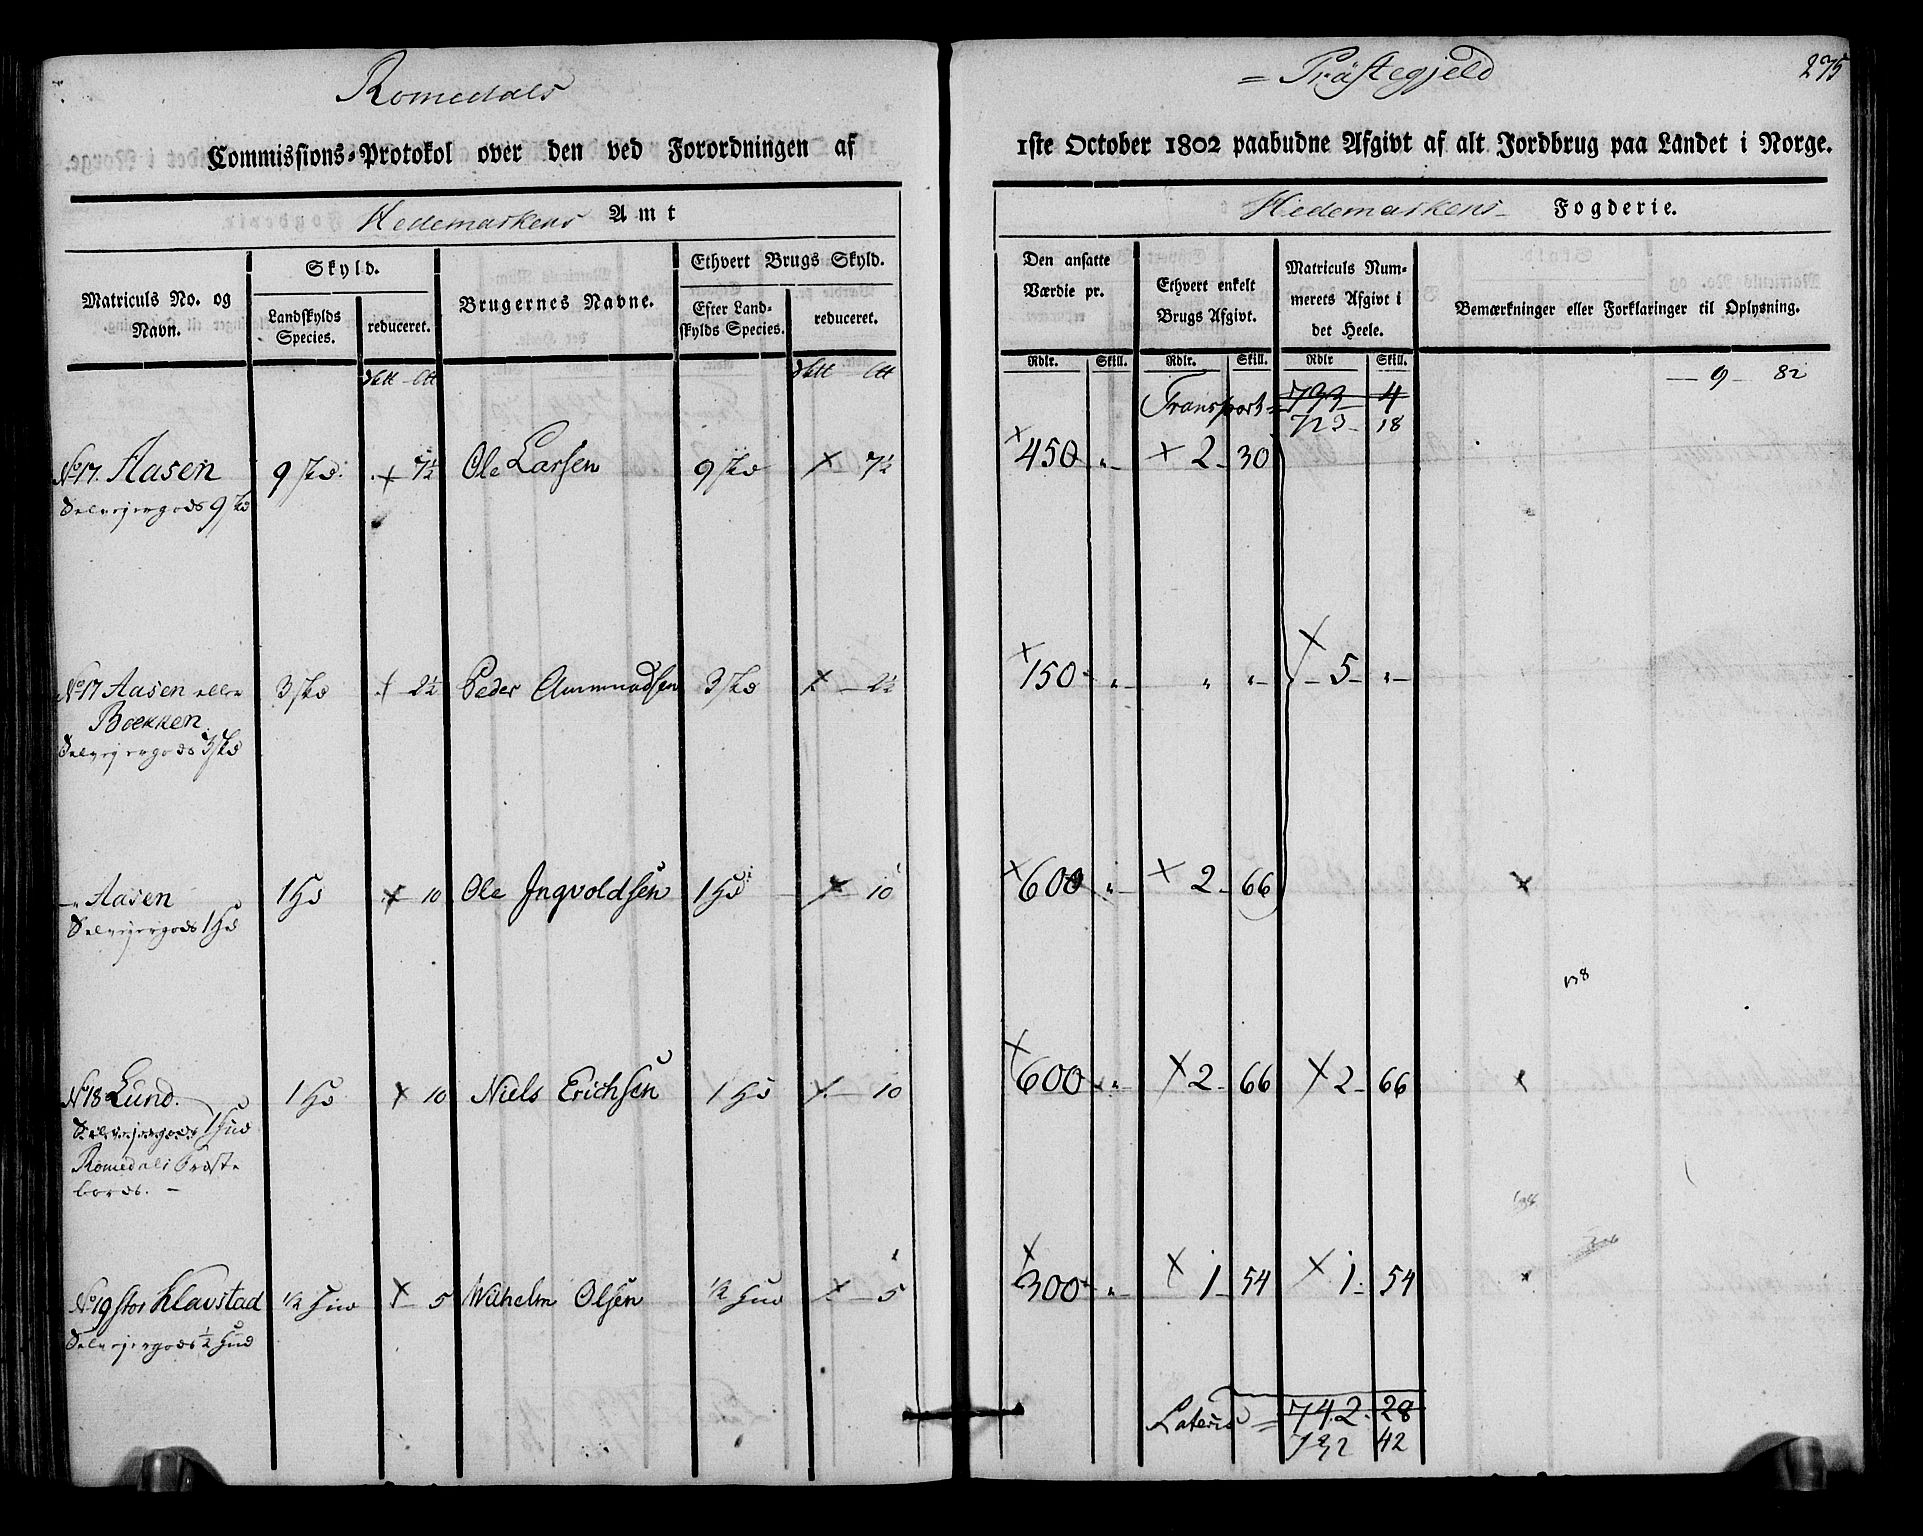 Romedals
= Prästegjeld
275
Commissions-Protokol over den ved Forordningen af
1ste October 1802 paabudne Afgivt af alt Jordbrug paa Landet i Norge.
Hedemarkens Amt
Hedemarkens Fogderie.
Matriculs No. og Navn.
Skyld.
Landskylds Species.
reduceret.
Brugernes Navne.
Ethvert Brugs Skyld.
Efter Landskylds Species.
reduceret.
Den ansatte Værdie pr.
Ethvert enkelt Brugs Afgivt.
Matriculs Nummerets Afgivt i det Heele.
Bemærkninger eller Forklaringer til Oplysning.
Rdlr. Skill. Rdlr. Skill. Rdlr Skill.
— 9 — 82
Transport = 733 4
723 - 18
No 17. Aasen 9 + 7½ Ole Larsen 9 + 7½ + 450 „ + 2 - 30
Selvejergods 9
No 17 Aasen eller 3 + 2½ Peder Ammundsen 3 + 2½ + 150 - „ „ „ + 5 - „
Bækken
Selvejergods 3
— „ Aasen 1 + 10 Ole Ingvoldsen 1 + 10 + 600 „ + 2 - 66
Selvejergods 1
No 18 Lund. 1 + 10 Niels Erichsen 1 + 10 + 600 „ + 2 - 66 + 2 - 66
Selvejergods 1 Hud
Romedals Præste-
bords. —
No 19 Stor Klavstad ½ Hud + 5 Wilhelm Olsen ½ Hud + 5 + 300 - „ + 1 - 54 + 1 - 54
Selvejergods ½ Hud
Lateris = 742 - 28
732 42